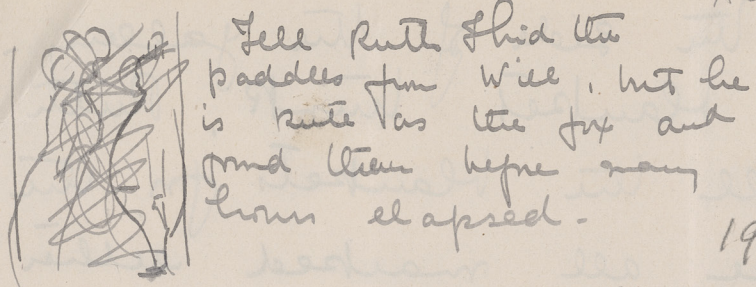 Tell Ruth I hid the
paddles from Will, but he
is kute as the fox and
found them before many
hours elapsed.
19